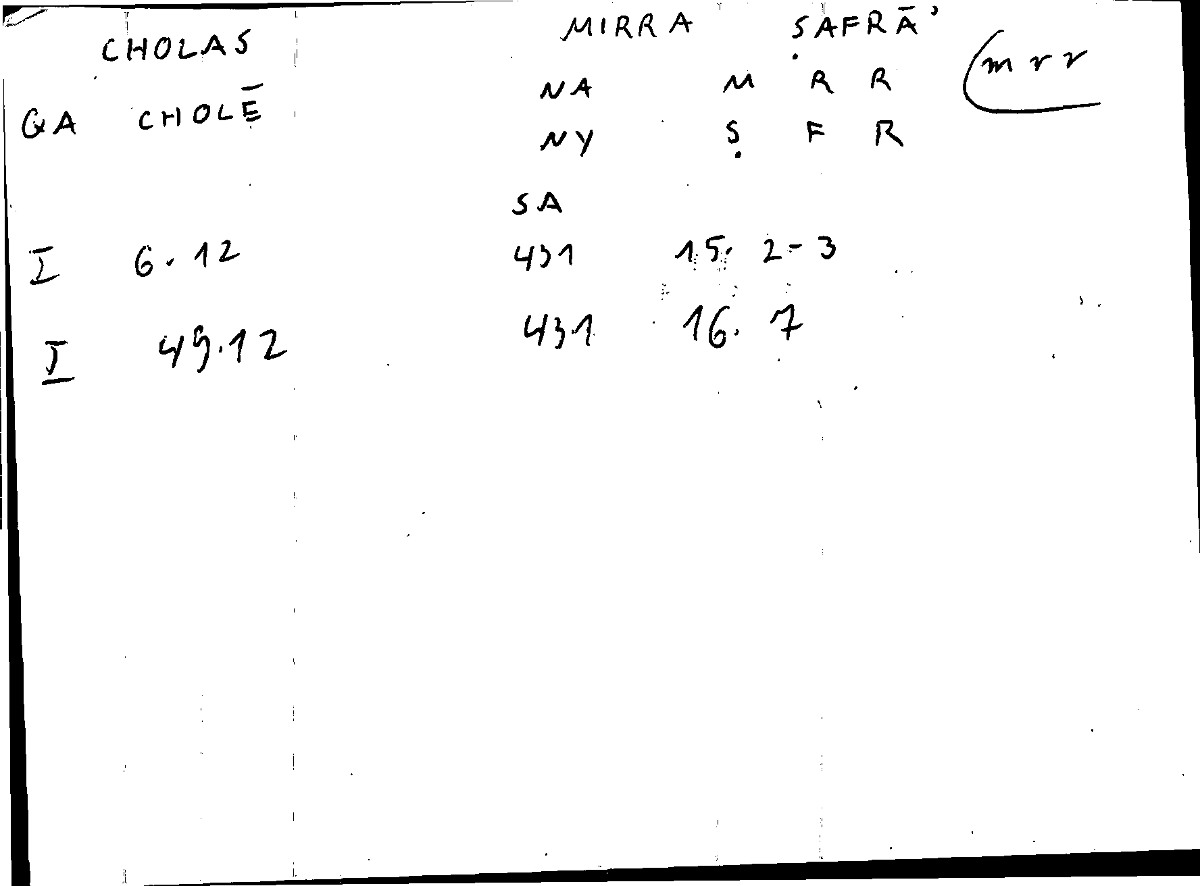 CHOLAS MIRRA ṢAFRĀʾ
QA CHOLĒ NA M R R (mrr
NY Ṣ F R
SA
I 6.12 431 15. 2-3
I 49.12 431 16. 7